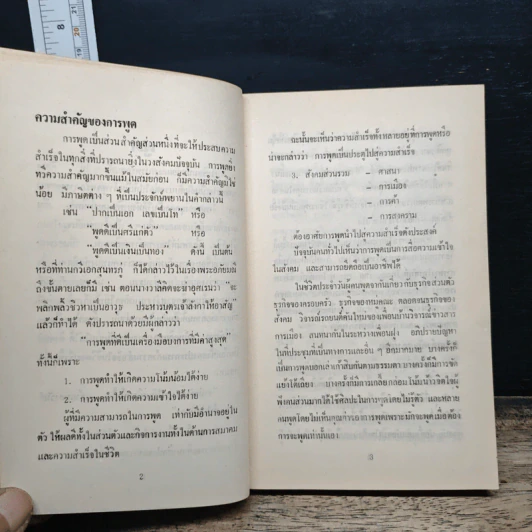 ความสำคัญของการพูด
การพูดเป็นส่วนสำคัญส่วนหนึ่งที่จะให้ประสบความ
สำเร็จในทุกสิ่งที่ปรารถนายิ่งในวงสังคมปัจจุบัน การพูดยิ่ง
ทวีความสำคัญมากขึ้นแม้ในสมัยก่อน ก็มีความสำคัญมิใช่
น้อย มีภาษิตต่าง ๆ ที่เป็นประจักษ์พยานในคำกล่าวนี้
เช่น "ปากเป็นเอก เลขเป็นโท" หรือ
"พูดดีเป็นศรีแก่ตัว" หรือ
"พูดดีเป็นเงินเป็นทอง" ดังนี้ เป็นต้น
หรือที่ท่านกวีเอกสุนทรภู่ ก็ได้กล่าวไว้ในเรื่องพระอภัยมณี
ถึงขั้นตายเลยก็มี เช่น ตอนนางวาลีคิดจะฆ่าอุศเรนว่า จะ
พลิกพลิ้วชิวหาเป็นอาวุธ ประหารบุตรเจ้าลังกาให้อาสัญ
แล้วก็ทำได้ ดังปรารถนาด้วยมีผู้กล่าวว่า
"การพูดที่ดีเป็นเครื่องมือบาการที่มีค่าสูงสุด"
ทั้งนี้ก็เพราะ
1. การพูดทำให้เกิดความโน้มน้อมได้ง่าย
2. การพูดทำให้เกิดความเข้าใจได้ง่าย
ผู้ที่มีความสามารถในการพูด เท่ากับมีอำนาจอยู่ใน
ตัว ให้ผลดีทั้งในส่วนตัวและกิจการงานทั้งในด้านการสมาคม
และความสำเร็จในชีวิต
2
ฉะนั้นจะเห็นว่าความสำเร็จทั้งหลายอยู่ที่การพูดหรือ
น่าจะกล่าวว่า การพูดเป็นประตูไปสู่ความสำเร็จ
3. สังคมส่วนรวม - ศาสนา
- การเมือง
- การค้า
- การสงคราม
ต้องอาศัยการพูดนำไปสู่ความสำเร็จดังประสงค์
ปัจจุบันคนทั่วไปเห็นว่าการพูดเป็นการสื่อความเข้าใจ
ในสังคม และสามารถยึดถือเป็นอาชีพได้
ในชีวิตประจำวันผู้คนพูดจากันเกี่ยวกับธุรกิจส่วนตัว
ธุรกิจของครอบครัว ธุรกิจของหมู่คณะ ตลอดจนธุรกิจของ
สังคม วิจารณ์รถยนต์คันใหม่ของเพื่อนบ้าน วิจารณ์ข่าวสาร
การเมือง สนทนากันในระหว่างเพื่อนฝูง อภิปรายปัญหา
ในที่ประชุมที่เป็นทางการและอื่น ๆ อีกมากมาย บางครั้งก็
เป็นการพูดบอกเล่าเก้าสิบกันตามธรรมดา บางครั้งก็มีการขัด
แย้งโต้เถียง บางครั้งก็มีการเกลี้ยกล่อมโน้มน้าวจิตใจผู้
ฟังคนส่วนมากได้ใช้ศิลปะในการพูดโดยไม่รู้ตัว และหลาย
คนพูดโดยไม่เห็นคุณค่าของการพูดเพราะมักจะพูดเมื่อต้อง
การจะพูดเท่านั้นเอง
3